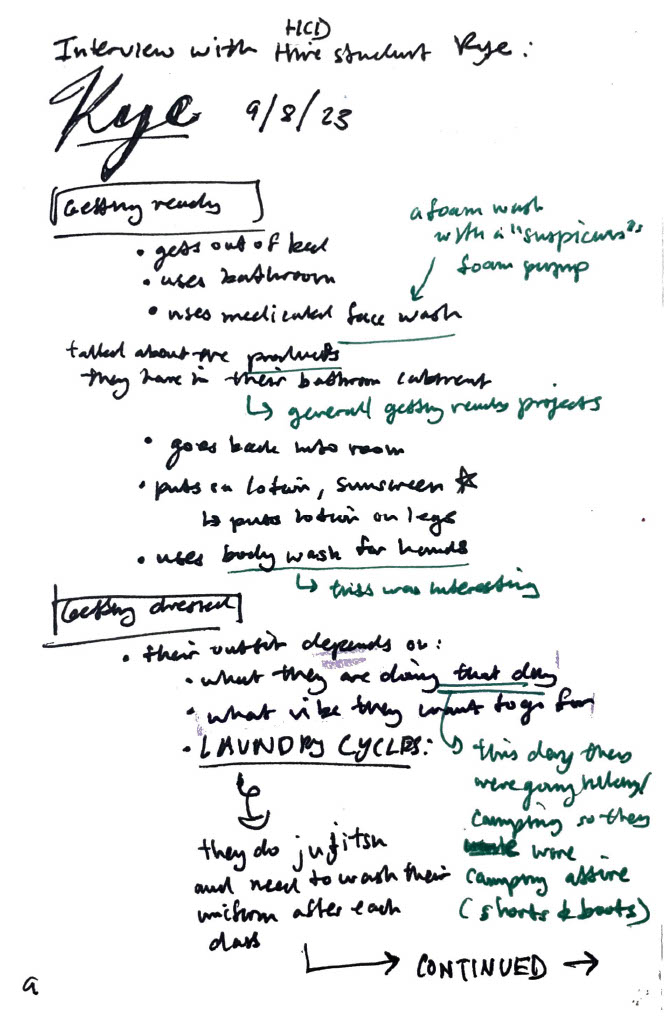 HCD
Interview with Hive student Kye:
Kye 9/8/23
Getting ready
a foam wash
with a "suspicious"
foam pump
• gets out of bed
• uses bathroom
• uses medicated face wash
talked about the products
they have in their bathroom cabinent
↳ generall getting ready projects
• goes back into room
• puts on lotion, sunscreen ☆
↳ puts lotion on legs
• uses body wash for hands
↳ this was interesting
Getting dressed
• their outfit depends on:
• what they are doing that day
• what vibe they want to go for
• LAUNDRY CYCLES:
↳ this day they
were going hiking/
camping so they
wore
camping attire
(shorts & boots)
they do jujitsu
and need to wash their
uniform after each
class
→ CONTINUED →
a